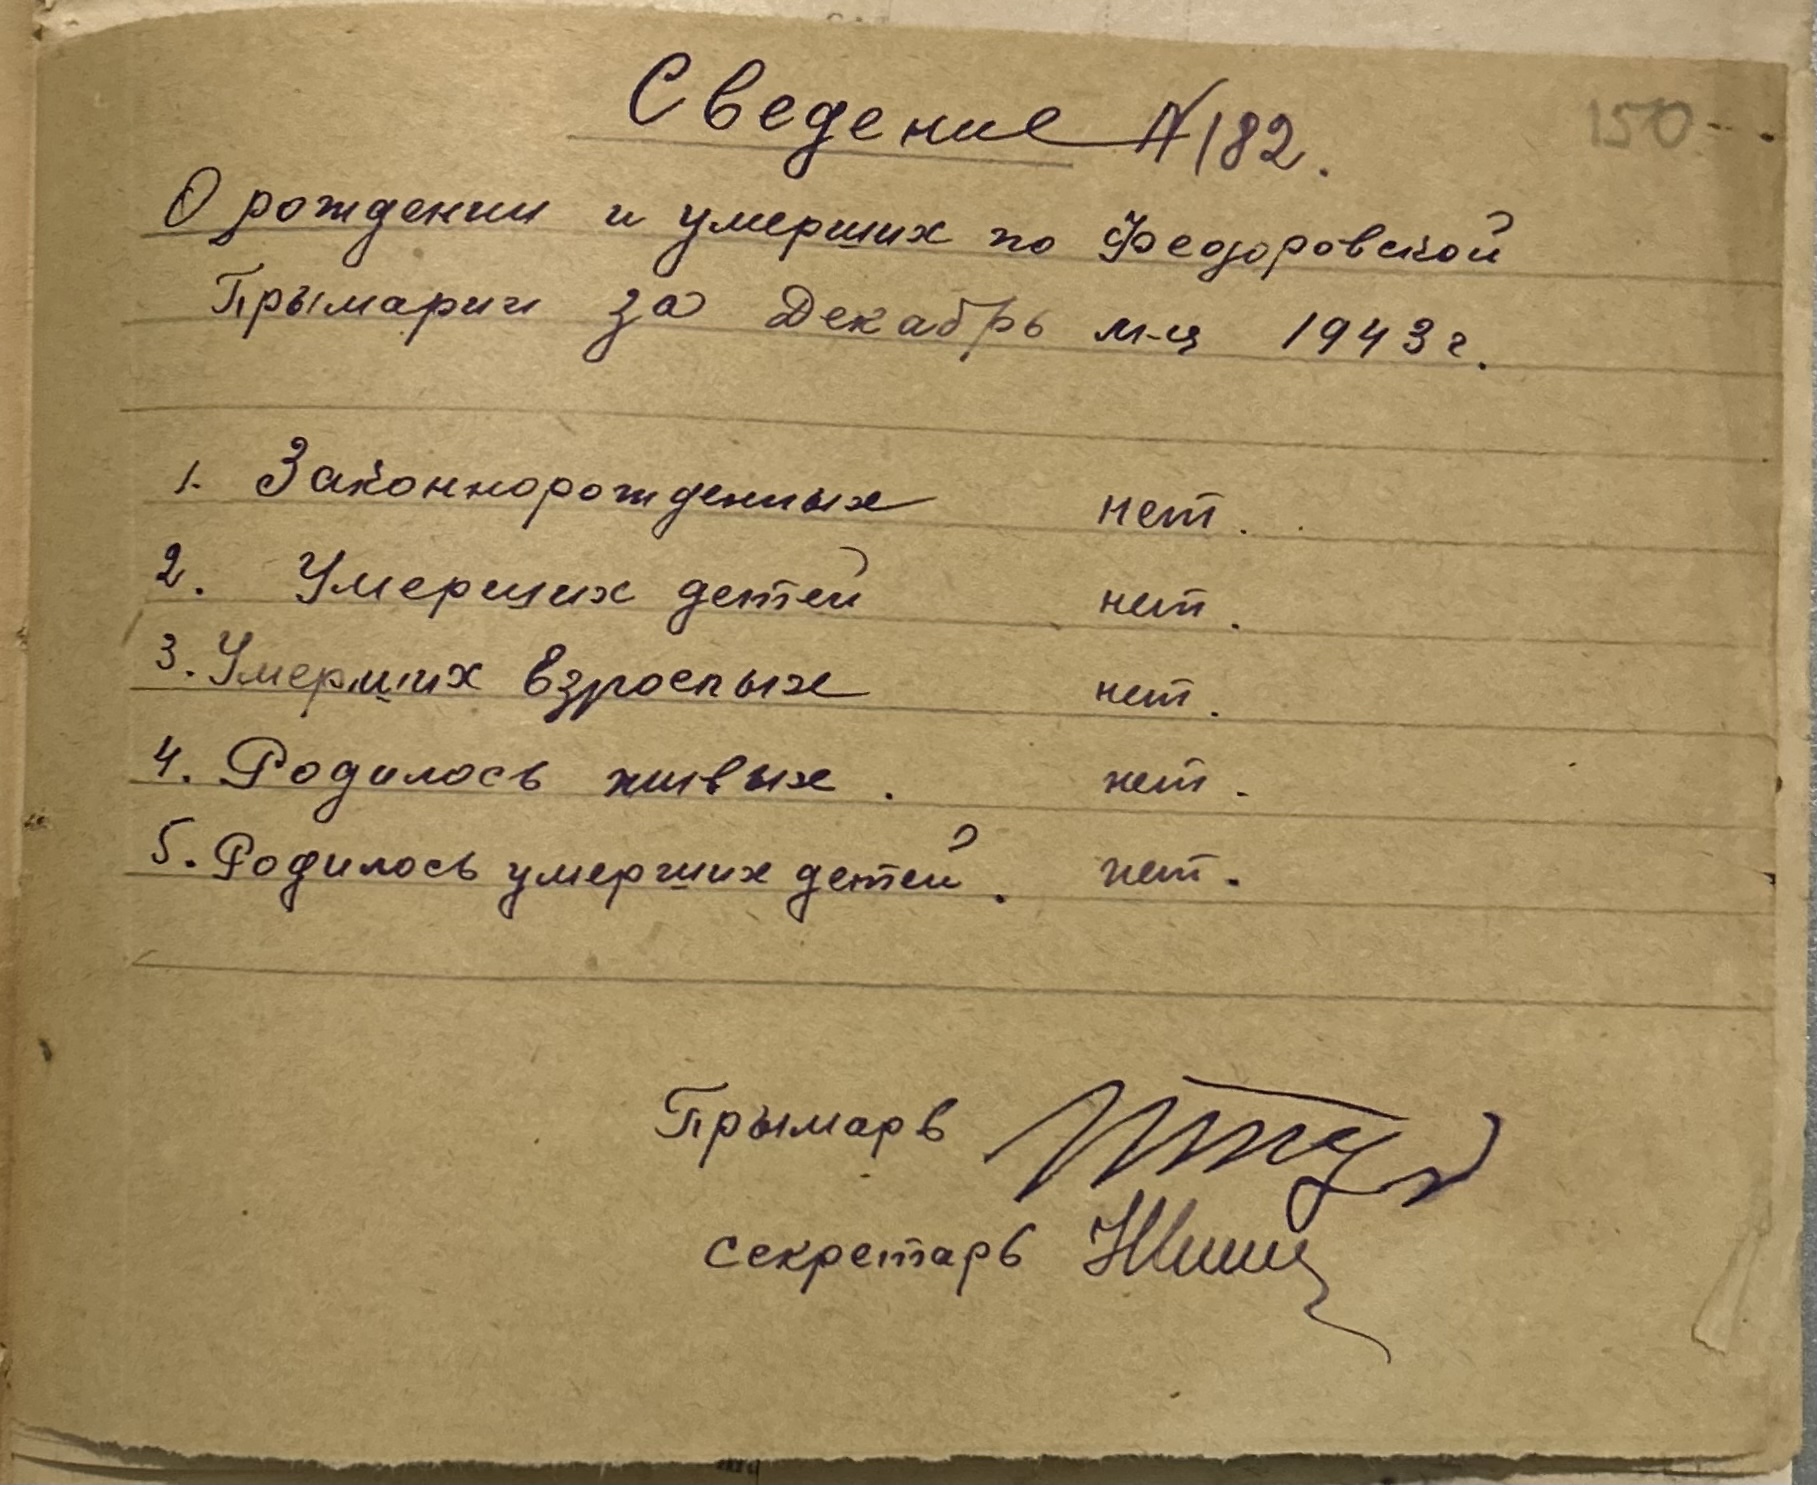 Сведение №182.
150
О рождении и умерших по Федоровской
Прымарии за Декабрь м-ц 1943 г.
1. Законнорожденных нет.
2. Умерших детей нет.
3. Умерших взрослых нет.
4. Родилось живых. нет.
5. Родилось умерших детей. нет.
Прымарь
секретарь